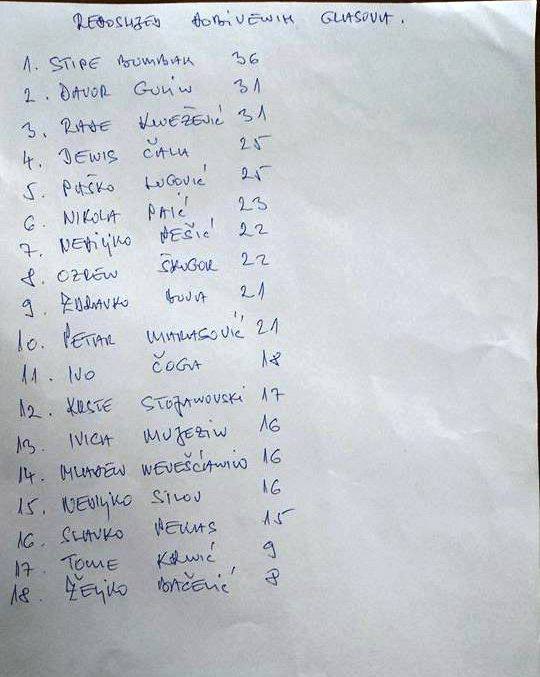 REDOSLIJED DOBIVENIH GLASOVA.
1. STIPE BUMBAK 36
2. DAVOR GULIN 31
3. RADE KNEŽEVIĆ 31
4. DENIS ČALA 25
5. PAŠKO LUGOVIĆ 25
6. NIKOLA PAIĆ 23
7. NEDILJKO PEŠIĆ 22
8. OZREN ŠKUGOR 22
9. ZDRAVKO BUVA 21
10. PETAR MARASOVIĆ 21
11. IVO ČOGA 18
12. KRSTE STOJANOVSKI 17
13. IVICA MUJEZIN 16
14. MLADEN NEVEŠĆANIN 16
15. NEDILJKO SILOV 16
16. SLAVKO PERAS 15
17. TOME KRNIĆ 9
18. ŽELJKO BAČELIĆ 8